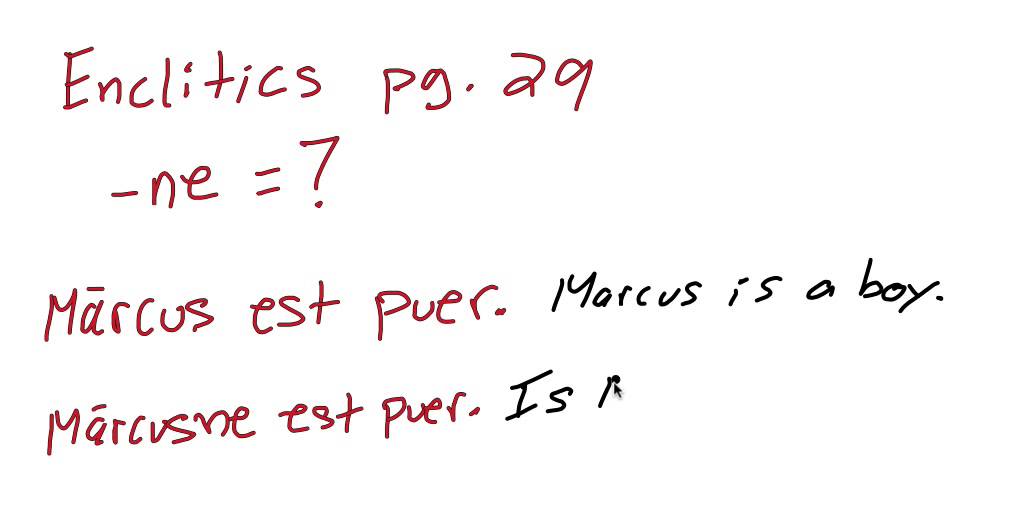 Enclitics pg. 29
-ne = ?
Mārcus est puer. Marcus is a boy.
Mārcusne est puer. Is